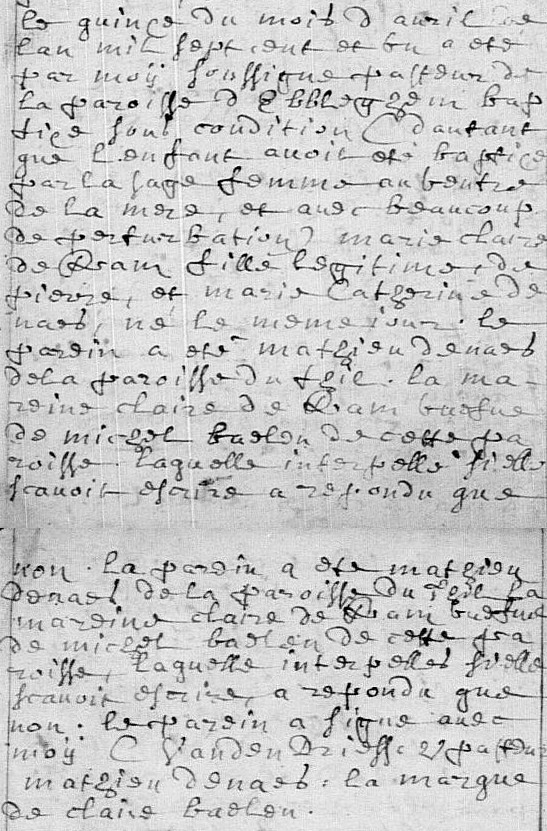 le quince du mois d auril de
lan mil sept cent et un a eté
par moij soussigne pasteur de
la paroisse d Ebbleghem bap
tice sous condition ( dautant
que l enfant auoit eté baptice
par la sage femme au ventre
de la mere, et auec beaucoup
de perturbation ) marie claire
de Kram fille legitime, de
pierre, et marie Catherine de
naes, né le meme iour. le
parein a eté mathieu denaes
dela paroisse du teil. la ma-
reine claire de Kram buefue
de michel baelen de cette pa
roisse. laquelle interpelle sielle
scauoit escrire a repondu que
non. la parein a eté mathieu
denaes de la paroisse du teil la
mareine claire de Kram buefue
de michel baelen de cette pa
roisse, laquelle interpelles sielle
scauoit escrire, a repondu que
non. le parein a signe auec
moij C Vanden Driessche pasteur
mathieu denaes. la marque
de claire baelen.